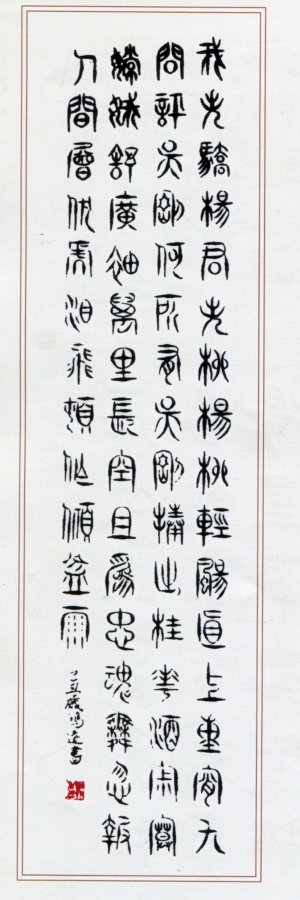 我失驕楊君失柳楊柳輕颺直上重霄九
問訊吳剛何所有吳剛捧出桂花酒寂寞
嫦娥舒廣袖萬里長空且爲忠魂舞忽報
人間曾伏虎泪飛頓作傾盆雨
丁丑書